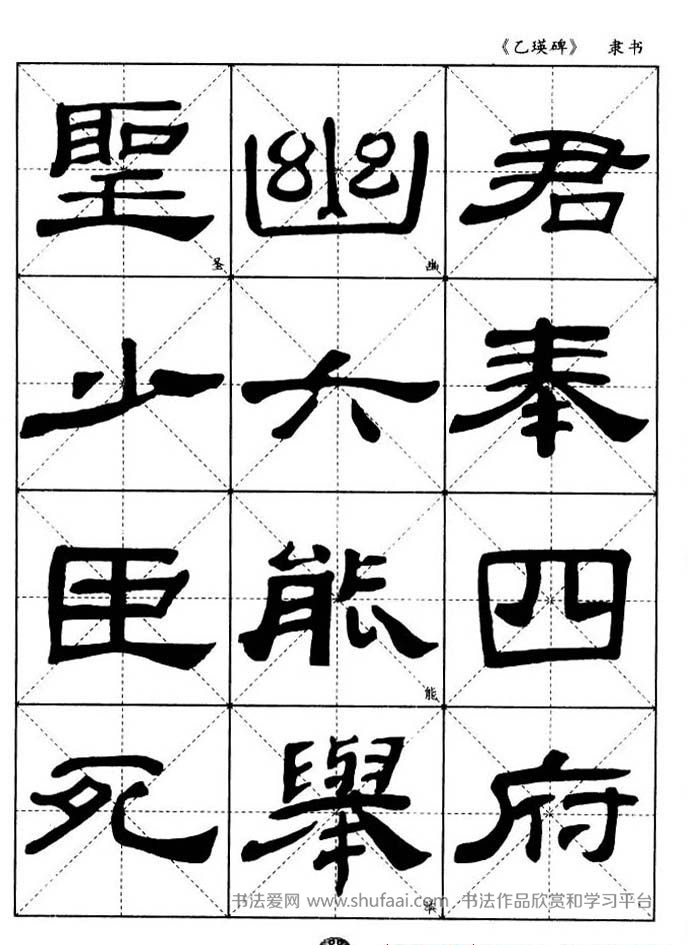 《乙瑛碑》 隶书
君奉四府
幽六能舉
幽
能
举
聖少臣死
圣
书法爱网 www.shufaai.com 书法作品欣赏和学习平台